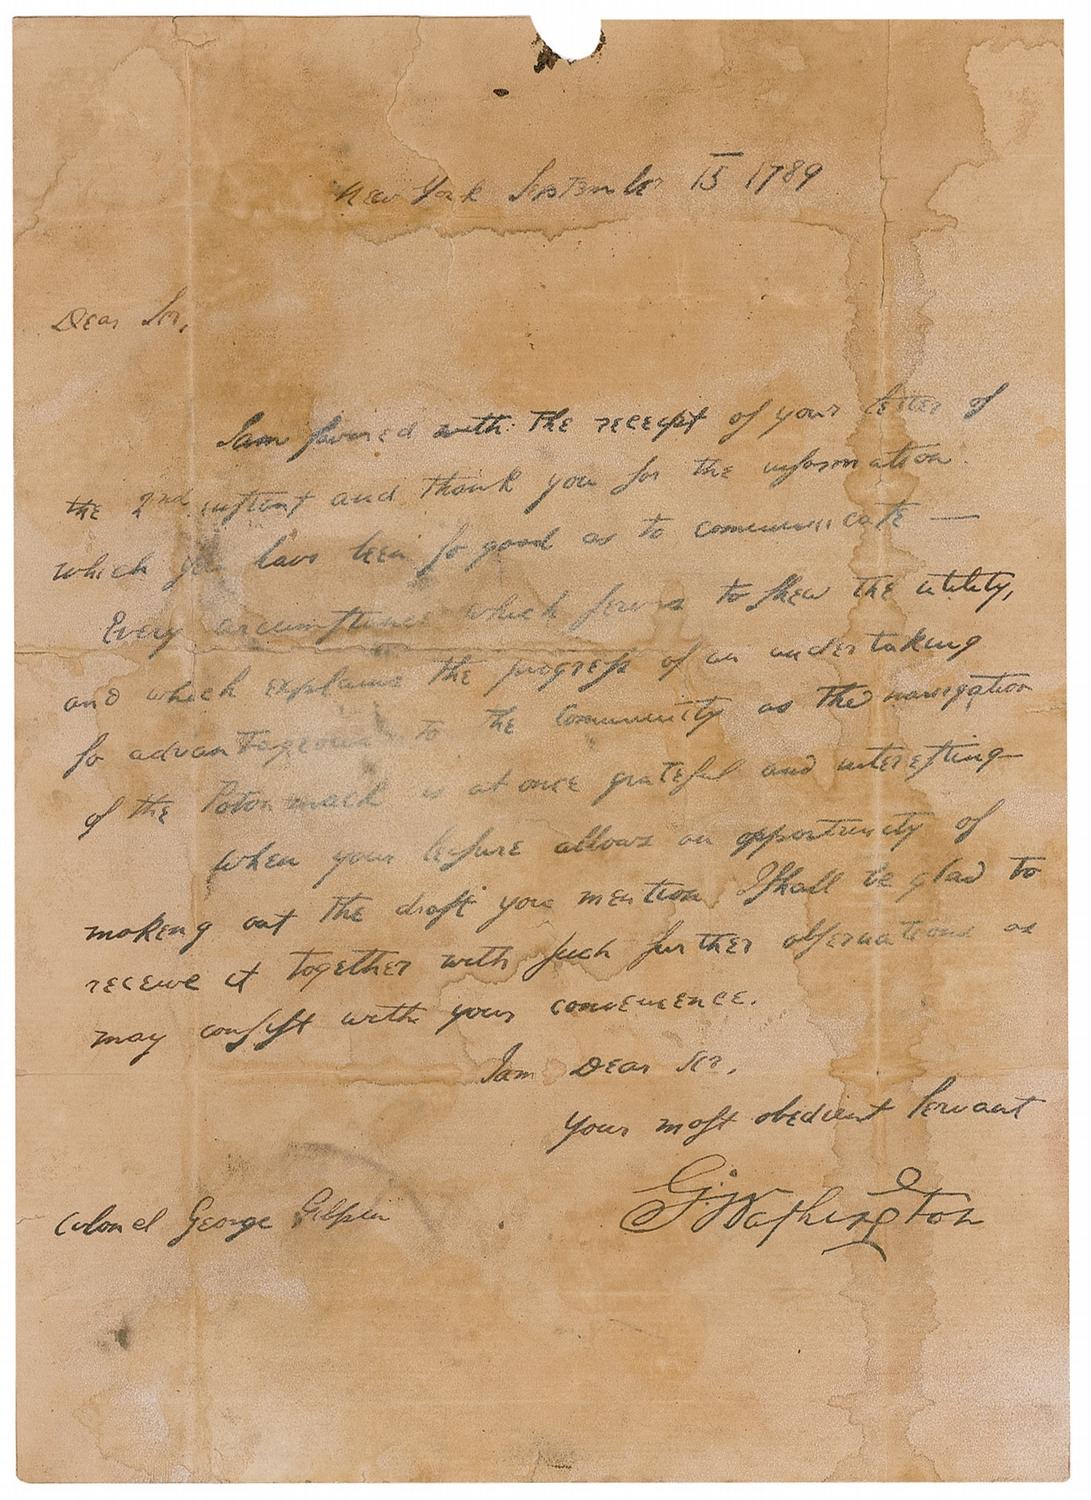 New York September 15 1789
Dear Sir,
I am favored with the receipt of your letter of
the 2nd inſtant and thank you for the information
which you have been ſo good as to communicate —
Every circumſtance which ſerves to ſhew the utility,
and which explains the progreſs of an undertaking
ſo advantageous to the Community as the navigation
of the Potommack is at once grateful and intereſting
When your leiſure allows an opportunity of
making out the draft you mention, I ſhall be glad to
receive it together with ſuch further obſervations as
may conſiſt with your convenience.
I am Dear Sir,
Your moſt obedient Servant
G:Waſhington
Colonel George Gilpin